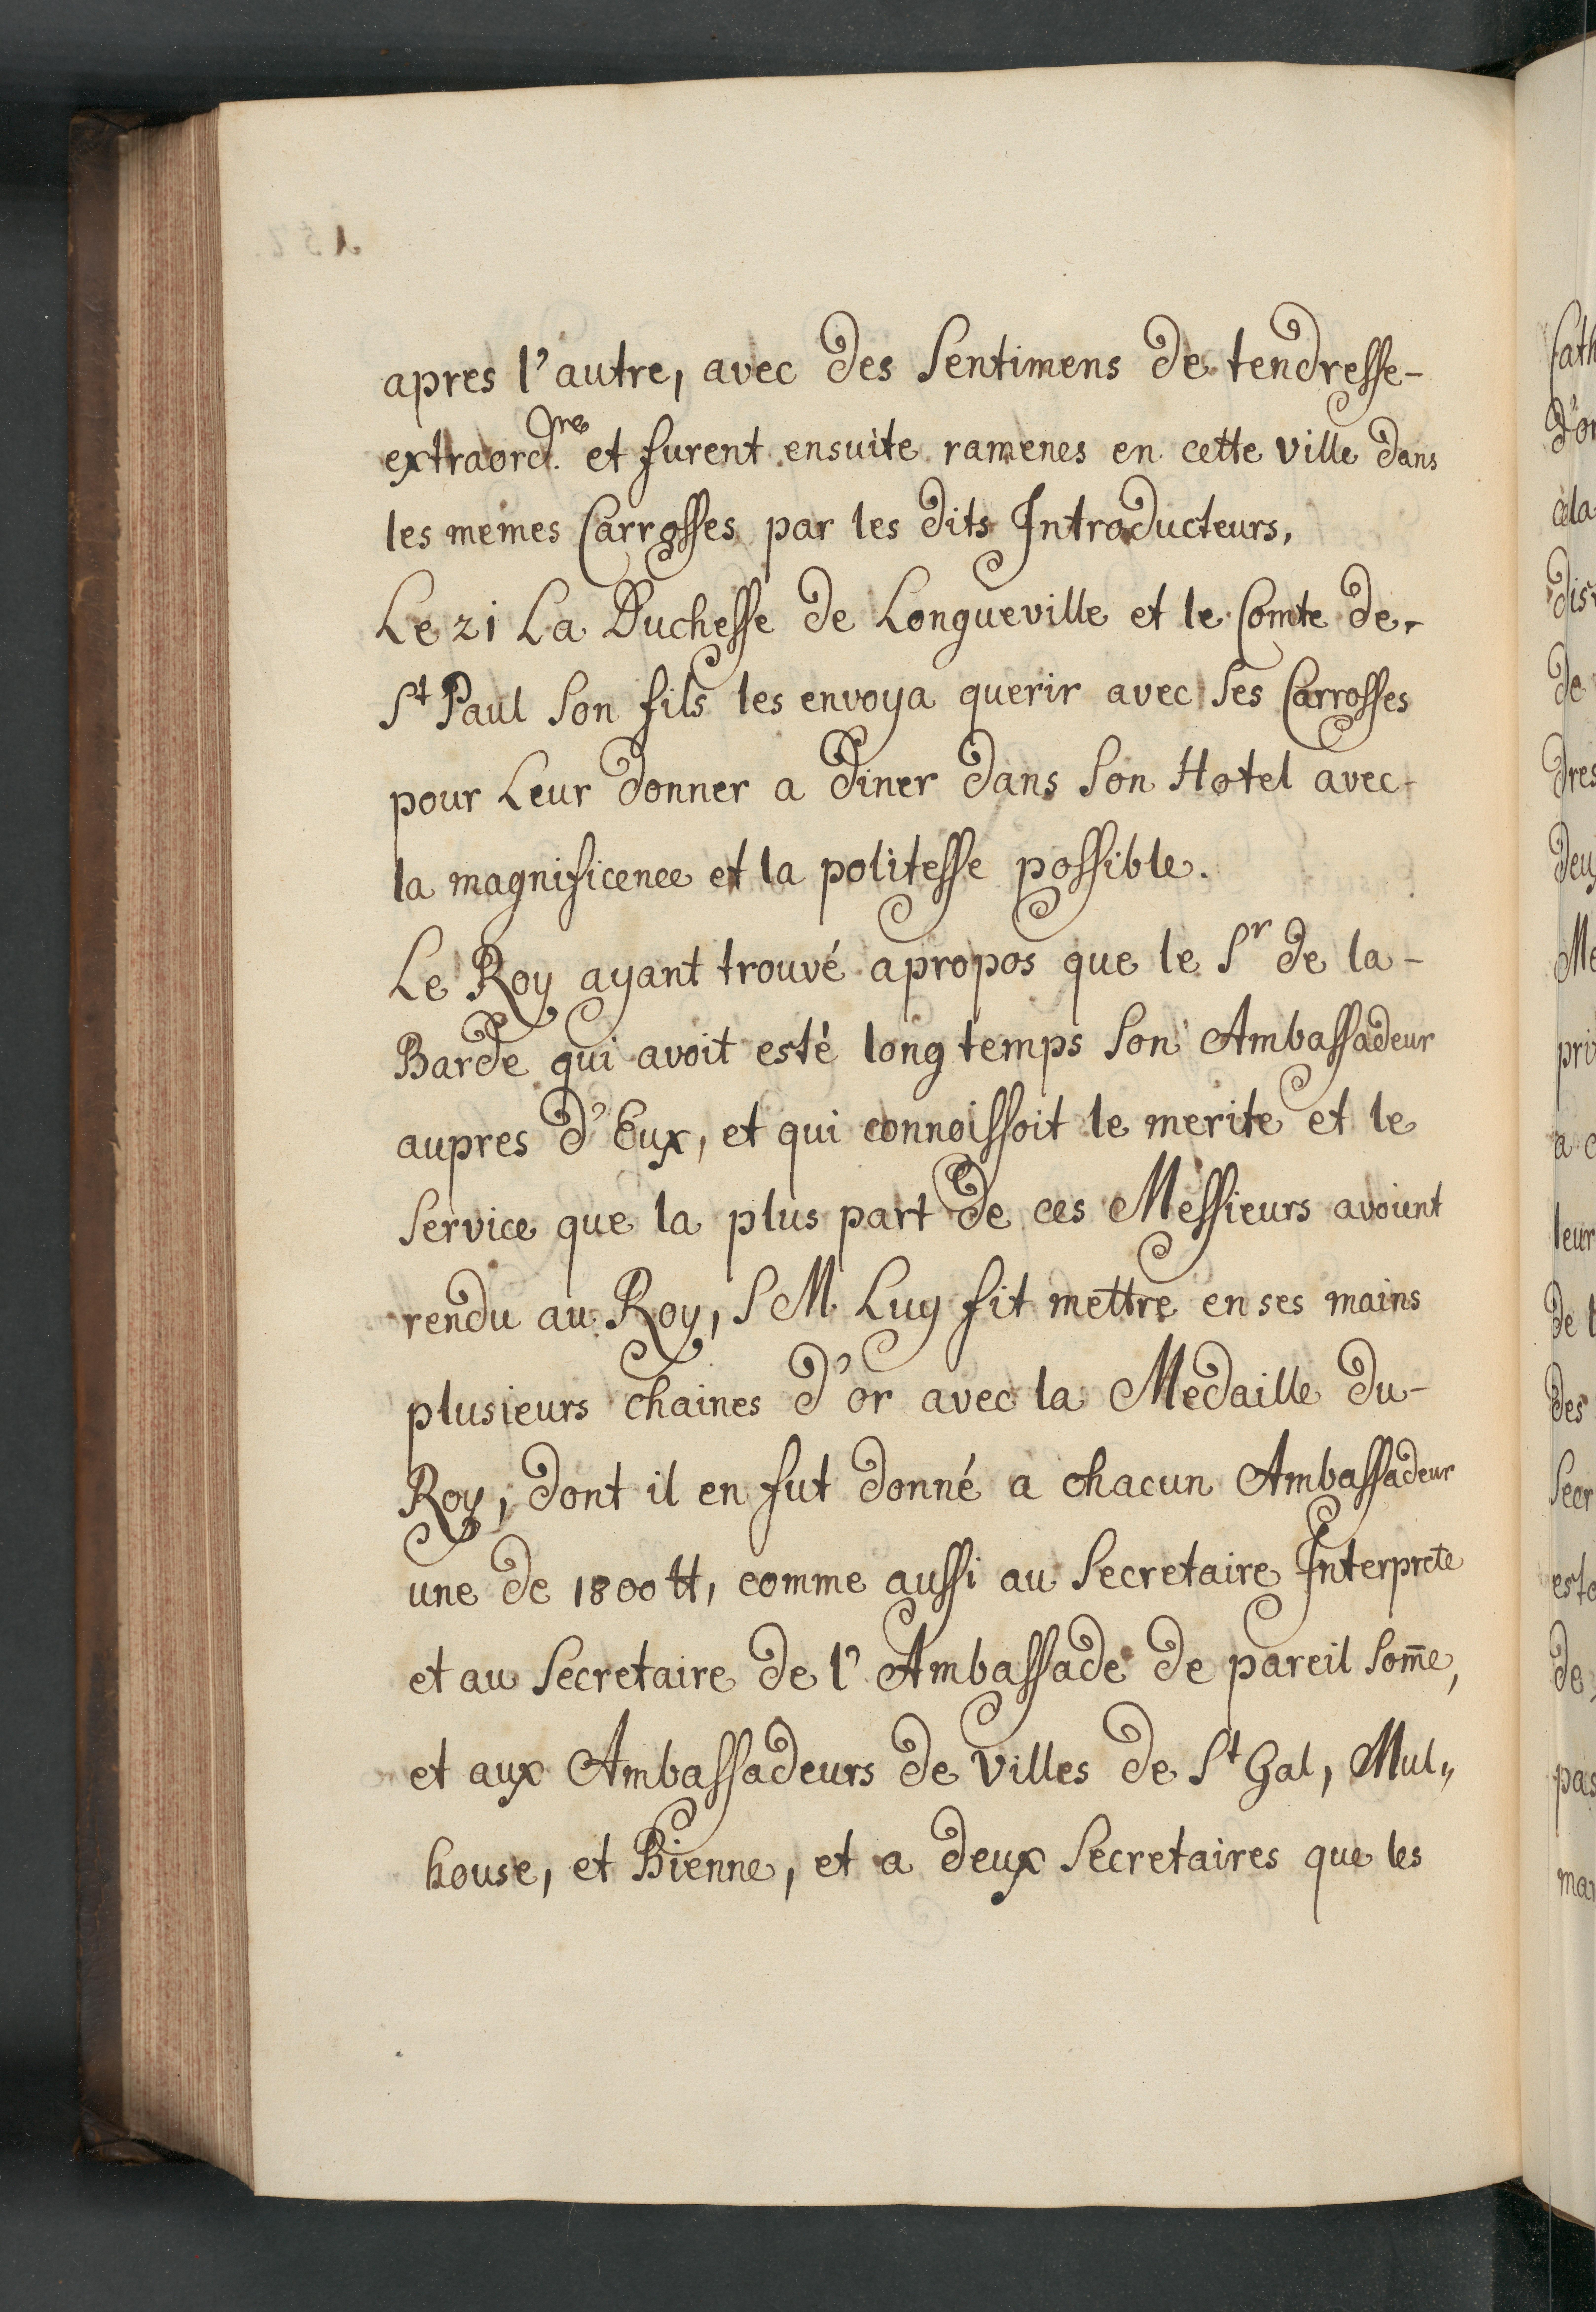 apres l'autre, avec des Sentimens de tendresse-
extraord.re et furent ensuite ramenes en cette ville dans
les memes Carrosses par les dits Introducteurs,
Le 21 La Duchesse de Longueville et le Comte de-
St Paul Son fils les envoya querir avec Ses Carrosses
pour Leur donner a diner dans Son Hotel avec-
la magnificence et la politesse possible.
Le Roy ayant trouvé apropos que le Sr de la-
Barde qui avoit esté long temps Son Ambassadeur
aupres d'Eux, et qui connoissoit le merite et le
Service que la plus part de ces Messieurs avoient
rendu au Roy, S M. Luy fit mettre en ses mains
plusieurs chaines d'or avec la Medaille du-
Roy, dont il en fut donné a chacun Ambassadeur
une de 1800 tt, comme aussi au Secretaire Interprete
et au Secretaire de l'Ambassade de pareil Som̄e,
et aux Ambassadeurs de Villes de St Gal, Mul„
house, et Bienne, et a deux Secretaires que les